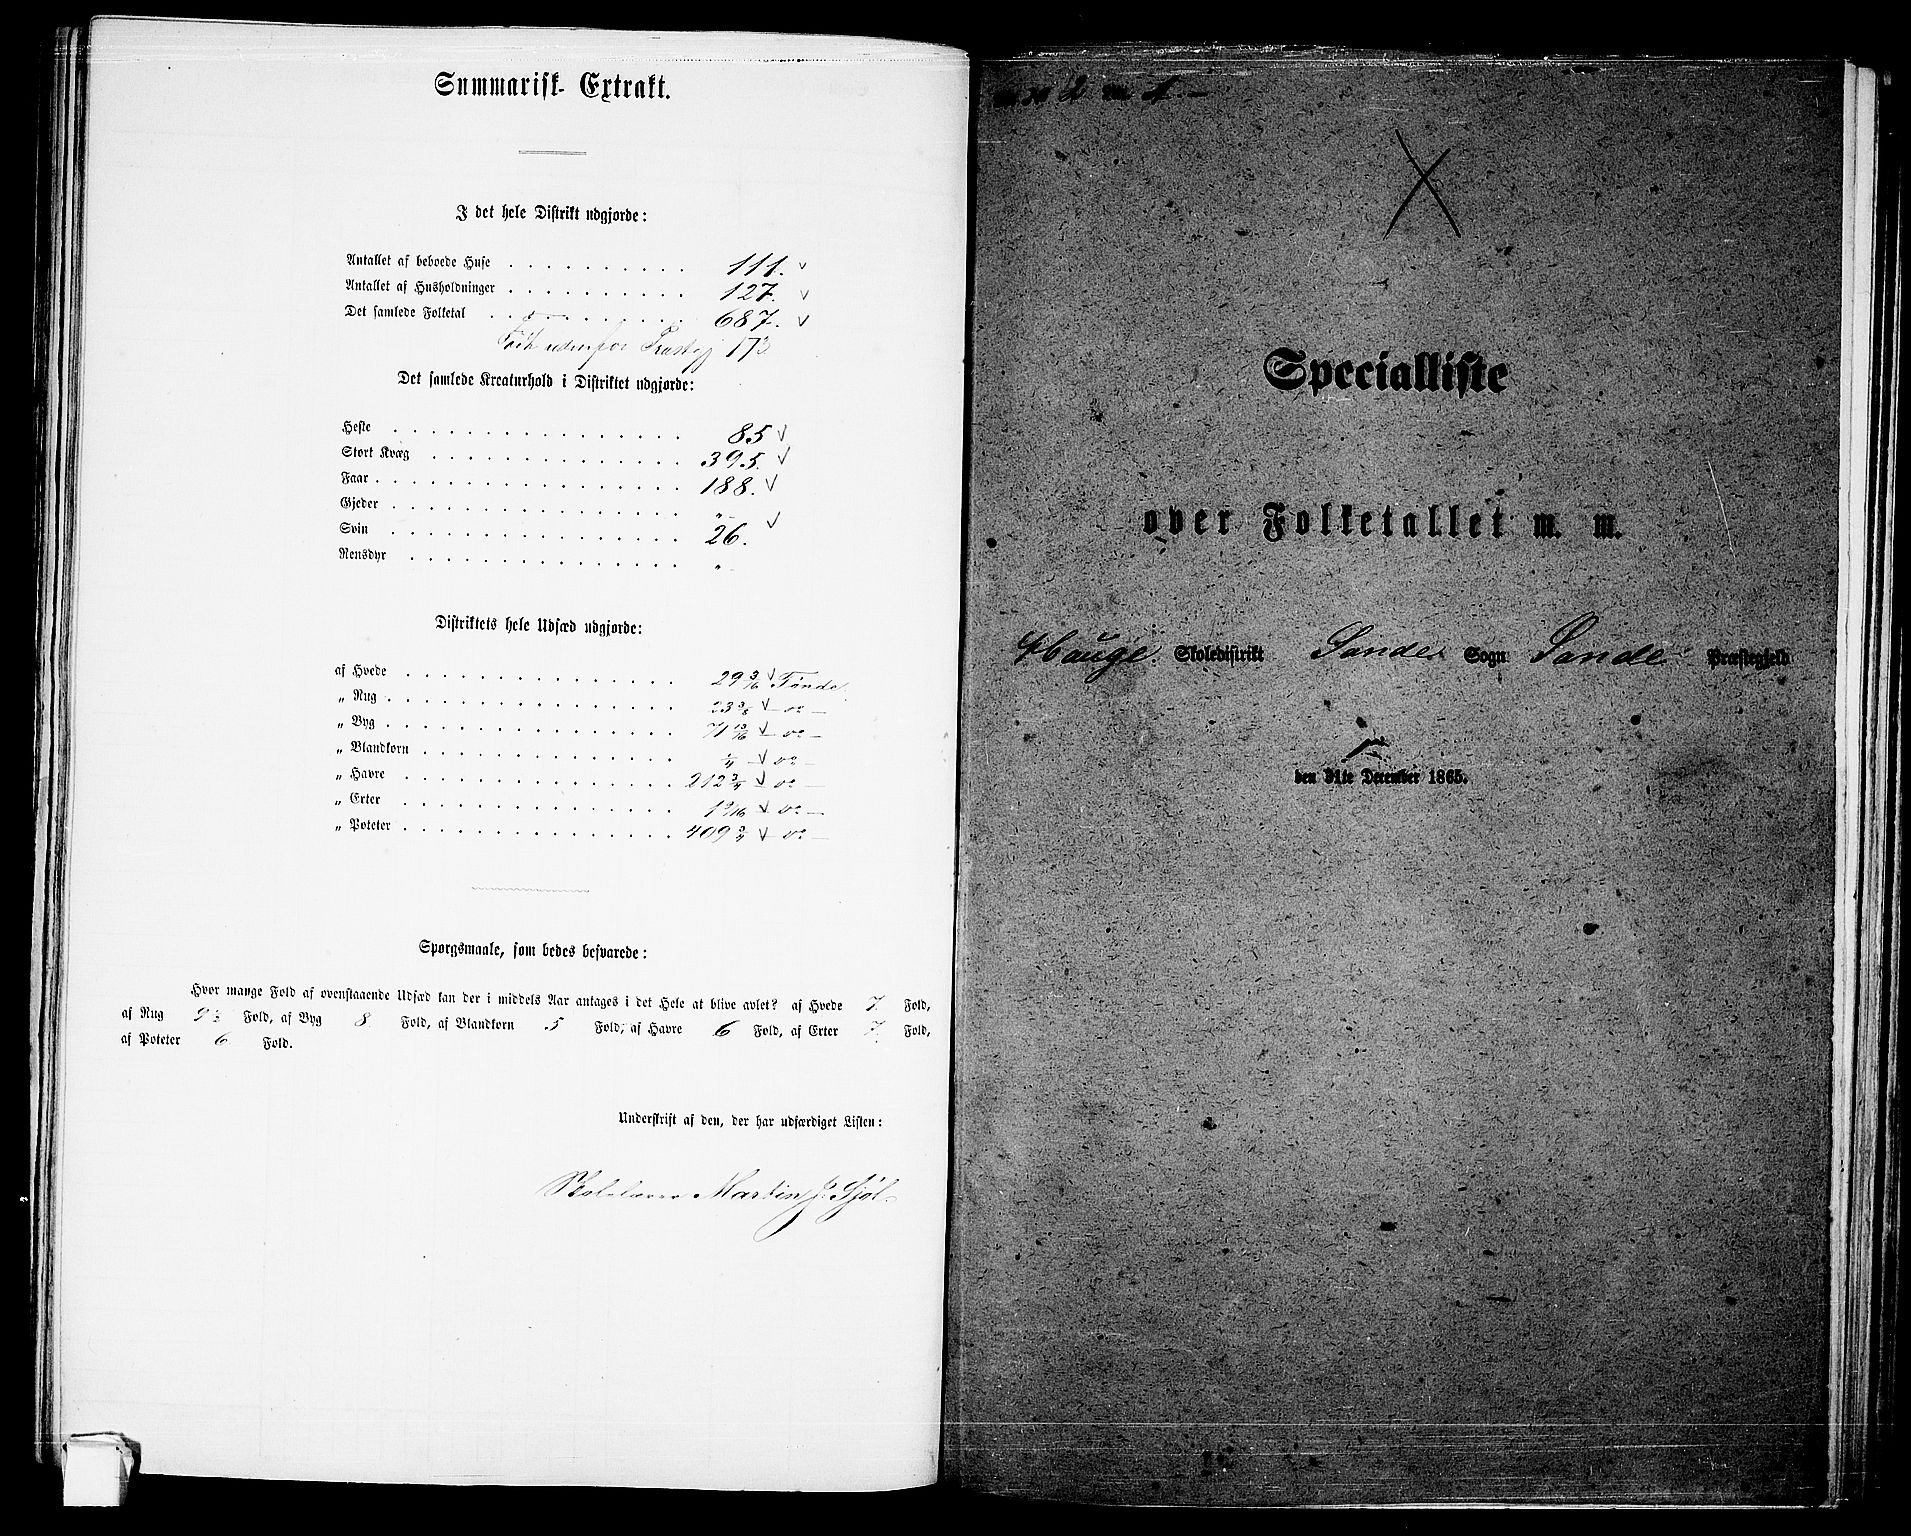 Summarisk Extrakt.
I det hele Distrikt udgjorde:
Antallet af beboede Huse . . . . . . . . . . 111. v
Antallet af Husholdninger . . . . . . . . . . 127. v
Det samlede Folketal . . . . . . . . . . 687. v
Født udenfor Præstegj 173
Det samlede Kreaturhold i Distriktet udgjorde:
Heste . . . . . . . . . . 85 v
Stort Kvæg . . . . . . . . . . 395. v
Faar . . . . . . . . . . 188. v
Gjeder . . . . . . . . . . „ -
Svin . . . . . . . . . . 26. v
Rensdyr . . . . . . . . . . „ -
Distriktets hele Udsæd udgjorde:
af Hvede . . . . . . . . . . 29 3/16 v Tønde.
„ Rug . . . . . . . . . . 23 3/8 v - do -
„ Byg . . . . . . . . . . 71 13/16 v - do -
„ Blandkorn . . . . . . . . . . 1/4 v - do -
„ Havre . . . . . . . . . . 212 3/4 v - do -
„ Erter . . . . . . . . . . 1 9/16 v - do -
„ Poteter . . . . . . . . . . 409 3/4 v - do -
Spørgsmaale, som bedes besvarede:
Hvor mange Fold af ovenstaaende Udsæd kan der i middels Aar antages i det Hele at blive avlet? af Hvede 7 Fold,
af Rug 9 1/2 Fold, af Byg 8 Fold, af Blandkorn 5 Fold, af Havre 6 Fold, af Erter 7 Fold,
af Poteter 6 Fold.
Underskrift af den, der har udfærdiget Listen:
Skolelærer Martin J. Sjøl
Specialliste
over Folketallet m. m.
Hauge Skoledistrikt Sande Sogn Sande Præstegjeld
den 31te December 1865.